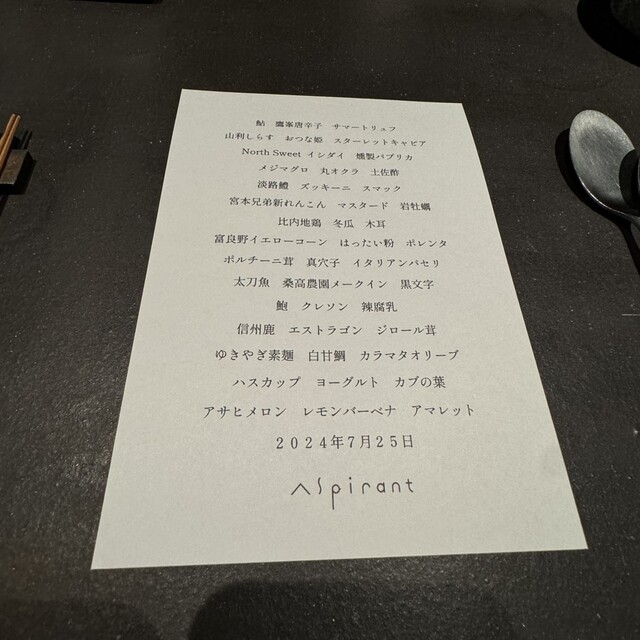 鮎　鷹峯唐辛子　サマートリュフ
山利しらす　おつな姫　スターレットキャビア
North Sweet イシダイ　燻製パプリカ
メジマグロ　丸オクラ　土佐酢
淡路鱧　ズッキーニ　スマック
宮本兄弟新れんこん　マスタード　岩牡蠣
比内地鶏　冬瓜　木耳
富良野イエローコーン　はったい粉　ポレンタ
ポルチーニ茸　真穴子　イタリアンパセリ
太刀魚　桑高農園メークイン　黒文字
鮑　クレソン　辣腐乳
信州鹿　エストラゴン　ジロール茸
ゆきやぎ素麺　白甘鯛　カラマタオリーブ
ハスカップ　ヨーグルト　カブの葉
アサヒメロン　レモンバーベナ　アマレット
2024年7月25日
Aspirant